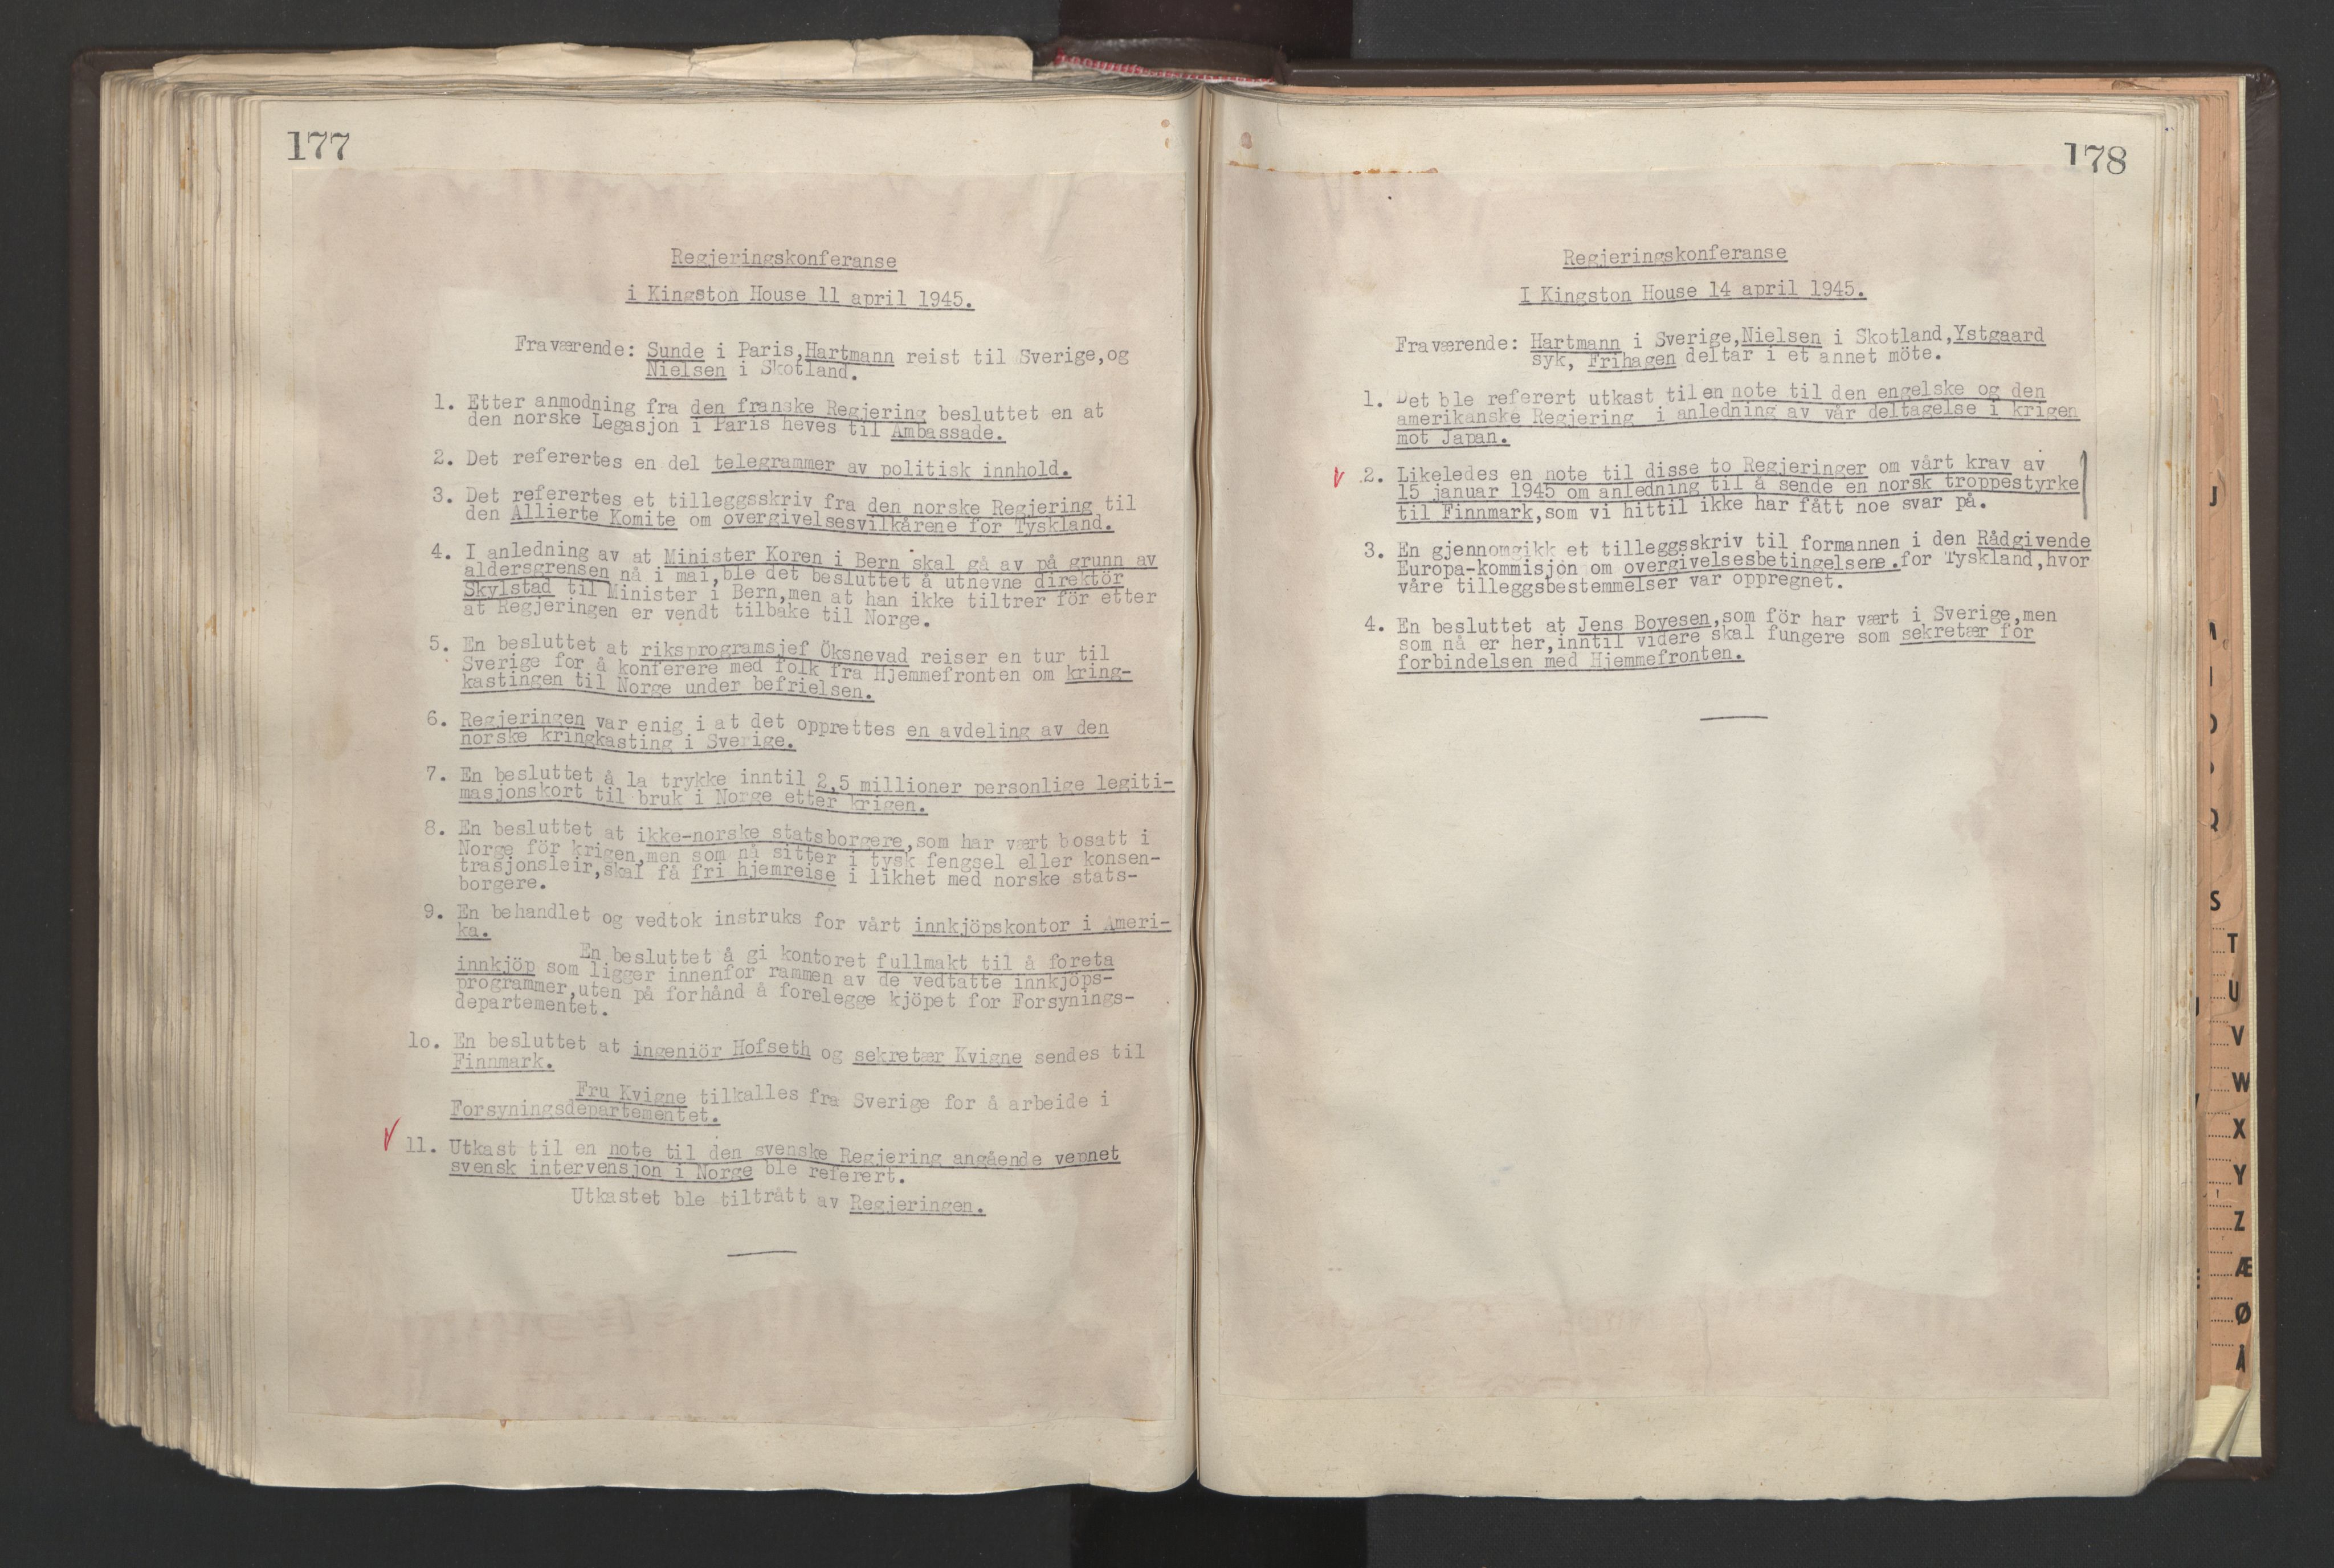 177
Regjeringskonferanse
i Kingston House 11 april 1945.
Fraværende: Sunde i Paris,Hartmann reist til Sverige,og
Nielsen i Skotland.
1. Etter anmodning fra den franske Regjering besluttet en at
den norske Legasjon i Paris heves til Ambassade.
2. Det referertes en del telegrammer av politisk innhold.
3. Det referertes et tilleggsskriv fra den norske Regjering til
den Allierte Komite om overgivelsesvilkårene for Tyskland.
4. I anledning av at Minister Koren i Bern skal gå av på grunn av
aldersgrensen nå i mai,ble det besluttet å utnevne direktör
Skylstad til Minister i Bern,men at han ikke tiltrer för etter
at Regjeringen er vendt tilbake til Norge.
5. En besluttet at riksprogramsjef Öksnevad reiser en tur til
Sverige for å konferere med folk fra Hjemmefronten om kring-
kastingen til Norge under befrielsen.
6. Regjeringen var enig i at det opprettes en avdeling av den
norske kringkasting i Sverige.
7. En besluttet å la trykke inntil 2,5 millioner personlige legiti-
masjonskort til bruk i Norge etter krigen.
8. En besluttet at ikke-norske statsborgere,som har vært bosatt i
Norge för krigen,men som nå sitter i tysk fengsel eller konsen-
trasjonsleir,skal få fri hjemreise i likhet med norske stats-
borgere.
9. En behandlet og vedtok instruks for vårt innkjöpskontor i Ameri-
ka.
En besluttet å gi kontoret fullmakt til å foreta
innkjöp som ligger innenfor rammen av de vedtatte innkjöps-
programmer,uten på forhånd å forelegge kjöpet for Forsynings-
departementet.
lo. En besluttet at ingeniör Hofseth og sekretær Kvigne sendes til
Finnmark.
Fru Kvigne tilkalles fra Sverige for å arbeide i
Forsyningsdepartementet.
11. Utkast til en note til den svenske Regjering angående vepnet
svensk intervensjon i Norge ble referert.
Utkastet ble tiltrått av Regjeringen.
178
Regjeringskonferanse
I Kingston House 14 april 1945.
Fraværende: Hartmann i Sverige,Nielsen i Skotland,Ystgaard
syk, Frihagen deltar i et annet möte.
1. Det ble referert utkast til en note til den engelske og den
amerikanske Regjering i anledning av vår deltagelse i krigen
mot Japan.
2. Likeledes en note til disse to Regjeringer om vårt krav av
15 januar 1945 om anledning til å sende en norsk troppestyrke
til Finnmark,som vi hittil ikke har fått noe svar på.
3. En gjennomgikk et tilleggsskriv til formannen i den Rådgivende
Europa-kommisjon om overgivelsesbetingelsene.for Tyskland,hvor
våre tilleggsbestemmelser var oppregnet.
4. En besluttet at Jens Boyesen,som för har vært i Sverige,men
som nå er her,inntil videre skal fungere som sekretær for
forbindelsen med Hjemmefronten.
J
S
T
U
V
W
X
Y
Z
Æ
Ø
Å